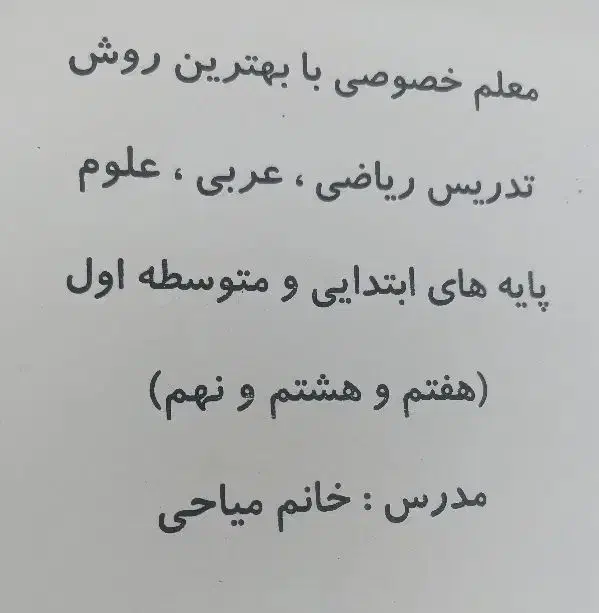 معلم خصوصی با بهترین روش
تدریس ریاضی ، عربی ، علوم
پایه های ابتدایی و متوسطه اول
(هفتم و هشتم و نهم)
مدرس : خانم میاحی